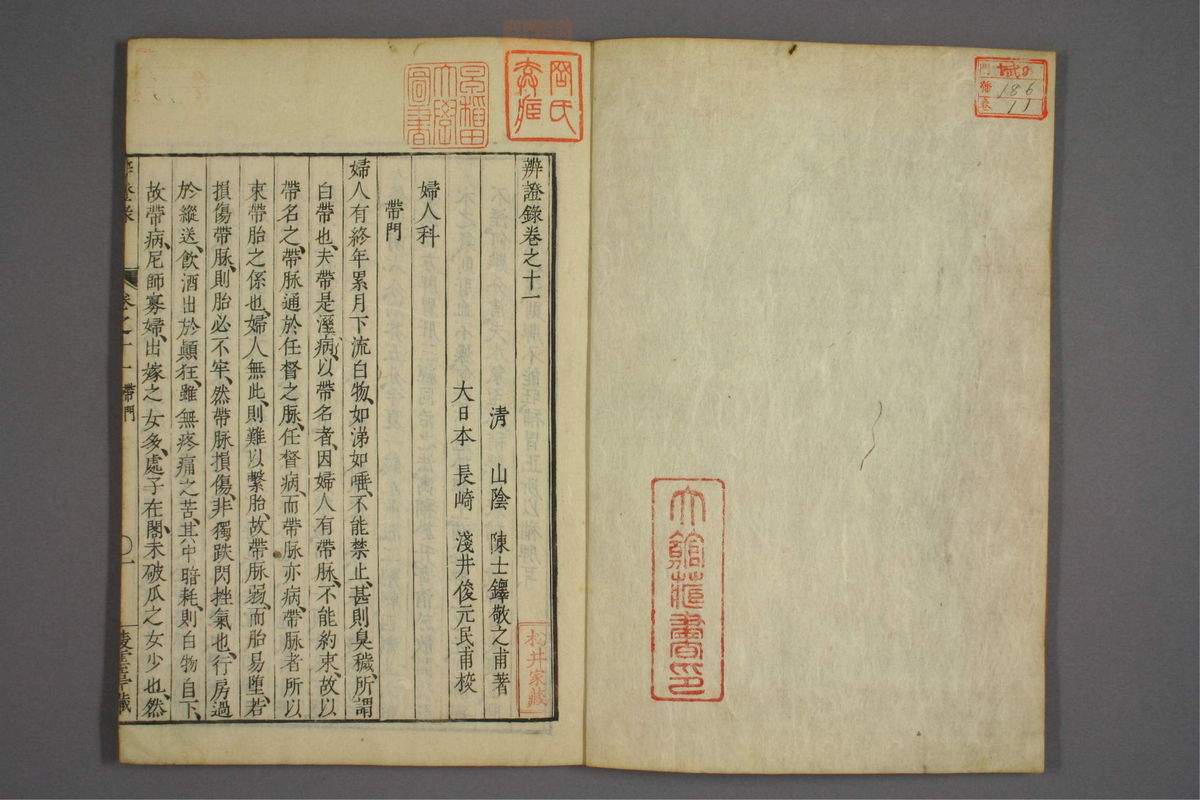 186
11
早稲田大學圖書
松井家藏
辨證錄卷之十一
清 山陰 陳士鐸敬之甫著
大日本 長崎 淺井俊元民甫校
婦人科
帶門
婦人有終年累月下流白物、如涕如唾、不能禁止、甚則臭穢、所謂
白帶也、夫帶是溼病、以帶名者、因婦人有帶脉、不能約束、故以
帶名之、帶脉通於任督之脉、任督病、而帶脉亦病、帶脉者所以
束帶胎之係也、婦人無此、則難以繫胎、故帶脉弱、而胎易堕、若
損傷帶脉、則胎必不牢、然帶脉損傷、非獨跌閃挫氣也、行房過
於縱送、飲酒出於顛狂、雖無疼痛之苦、其中暗耗、則白物自下、
故帶病、尼師寡婦、出嫁之女多、處子在閣、未破瓜之女少也、然
卷之十一 帶門 一